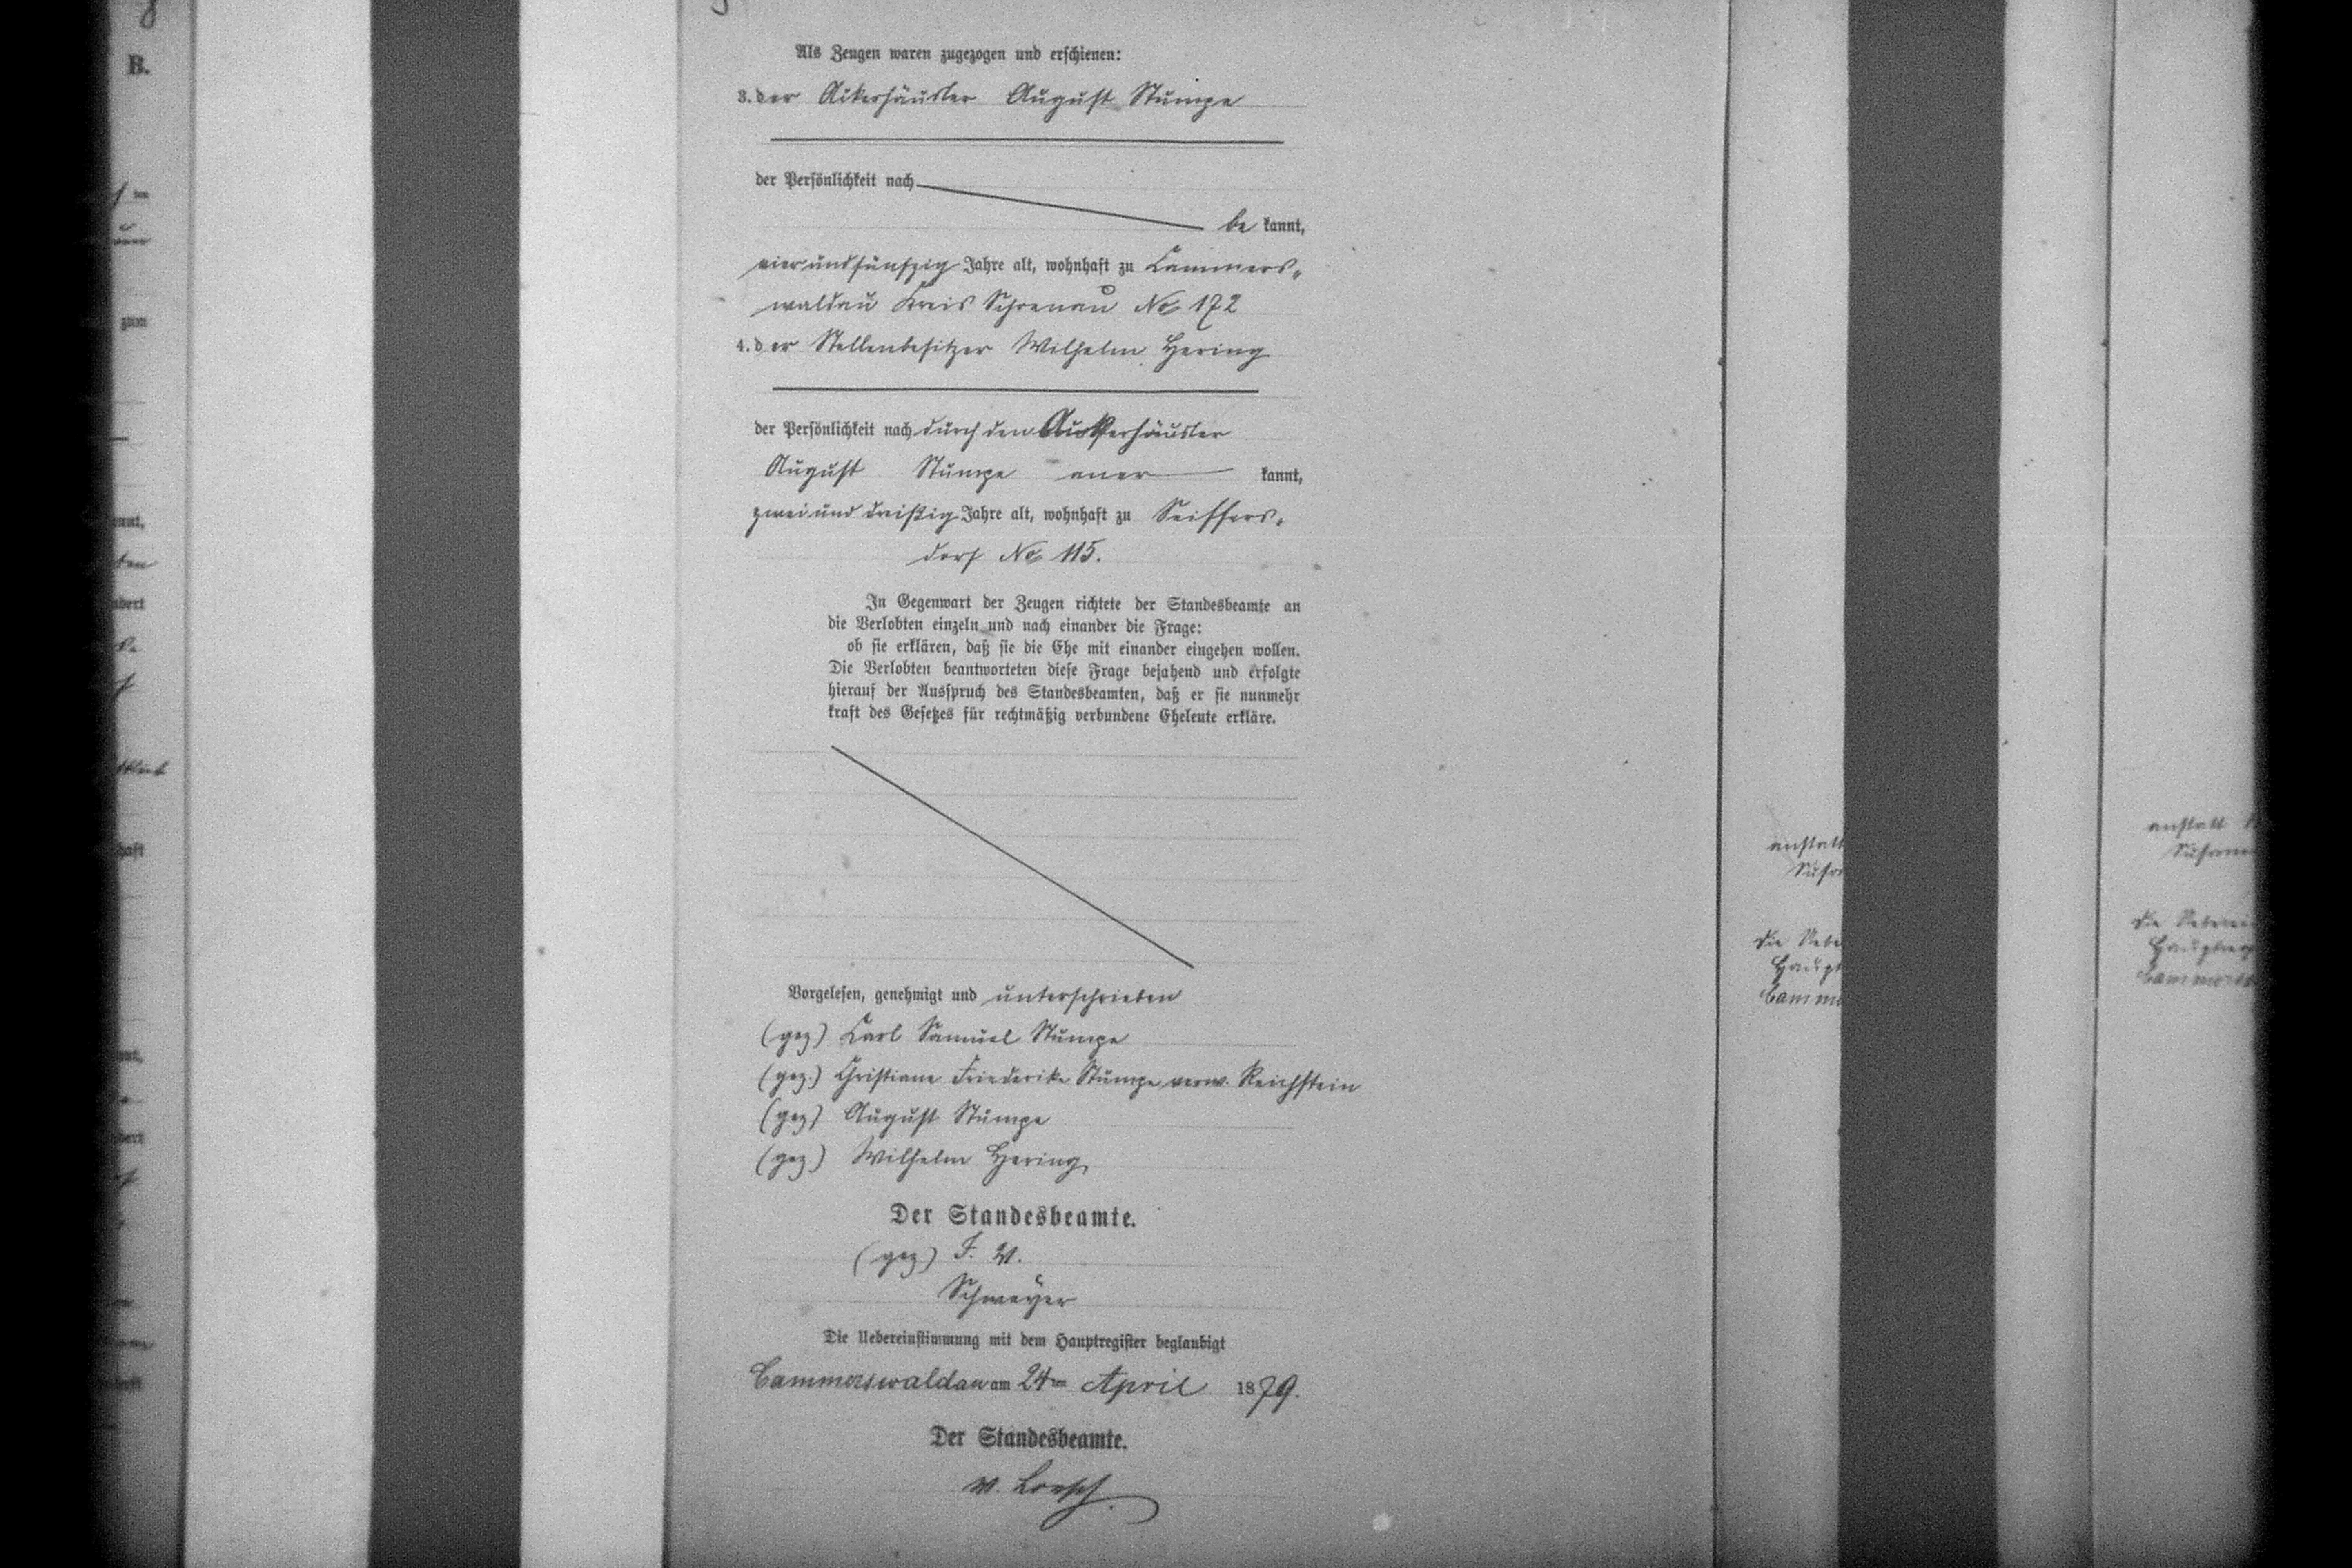 B.
Als Zeugen waren zugezogen und erschienen:
3. der Ackerhäusler August Stumpe
der Persönlichkeit nach
be kannt,
vierundfünfzig Jahre alt, wohnhaft zu Cammers-
waldau Kreis Schoenau No 172
4. der Stellenbesitzer Wilhelm Hering
der Persönlichkeit nach durch den Ackerhäusler
August Stumpe aner kannt,
zweiunddreißig Jahre alt, wohnhaft zu Seiffers-
dorf No 115.
In Gegenwart der Zeugen richtete der Standesbeamte an
die Verlobten einzeln und nach einander die Frage:
ob sie erklären, daß sie die Ehe mit einander eingehen wollen.
Die Verlobten beantworteten diese Frage bejahend und erfolgte
hierauf der Ausspruch des Standesbeamten, daß er sie nunmehr
kraft des Gesetzes für rechtmäßig verbundene Eheleute erkläre.
Vorgelesen, genehmigt und unterschrieben
(gez) Carl Samuel Stumpe
(gez.) Christiane Friederike Stumpe verw. Reichstein
(gez) August Stumpe
(gez) Wilhelm Hering
Der Standesbeamte.
(gez) I. V.
Schweyer
Die Uebereinstimmung mit dem Hauptregister beglaubigt
Cammerswaldau am 24ten April 1879.
Der Standesbeamte.
v. Loesch
anstatt
die
anstatt
die